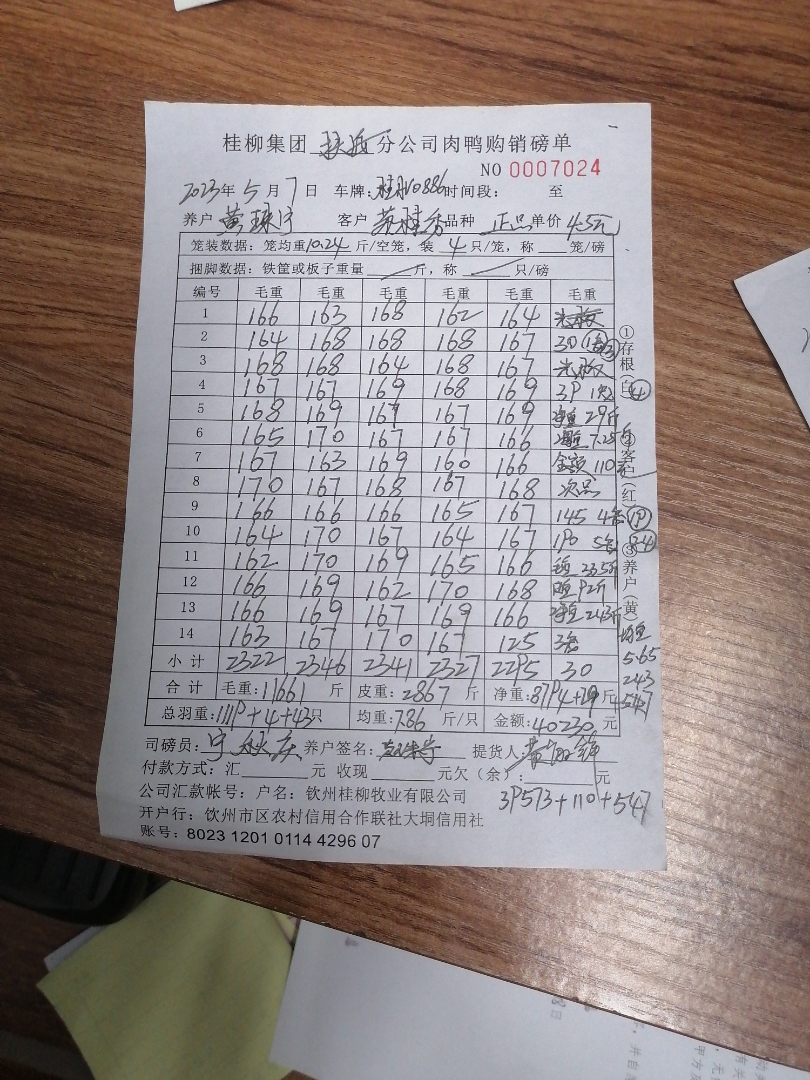 桂柳集团 分公司肉鸭购销磅单
NO 0007024
2023年 5 月 7 日 车牌: 0886 时间段: 至
养户 黄 客户 苏桂 品种 正品 单价 4.5元
笼装数据: 笼均重 10.24 斤/空笼, 装 4 只/笼, 称 笼/磅
捆脚数据: 铁筐或板子重量 斤, 称 只/磅
编号 毛重 毛重 毛重 毛重 毛重 毛重
1 166 163 168 162 164
2 164 168 168 168 167 30
3 168 168 164 168 167
4 167 167 169 168 169 3P
5 168 169 167 167 169 净重 29斤
6 165 170 167 167 166 7.25
7 167 163 169 160 166 金额 110
8 170 167 168 167 168 次品
9 166 166 166 165 167 145 4
10 164 170 167 164 167 1P0 5
11 162 170 169 165 166 235斤
12 166 169 162 170 168 P2斤
13 166 169 167 169 166 净重 243斤
14 163 167 170 167 125
小计 2322 2346 2341 2327 2295 30
均重
5.65
243
547
合计 毛重: 11661 斤 皮重: 2867 斤 净重: 87P4+29 斤
总羽重: 111P+4+43只 均重: 7.86 斤/只 金额: 40230 元
司磅员: 宁 养户签名: 提货人
付款方式: 汇 元 收现 元欠(余): 元
公司汇款帐号: 户名: 钦州桂柳牧业有限公司
3P573+110+547
开户行: 钦州市区农村信用合作联社大垌信用社
账号: 8023 1201 0114 4296 07
①存根(白)②客户(红)③养户(黄)